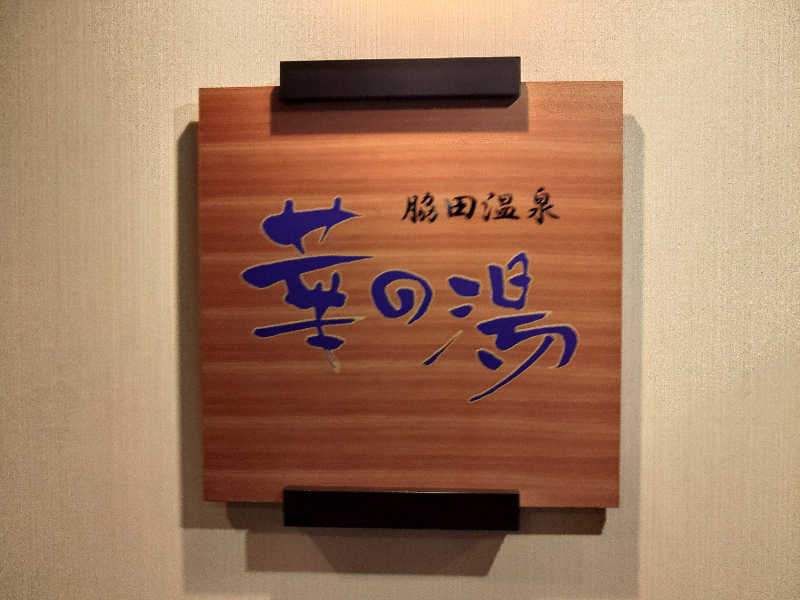 脇田温泉
華の湯